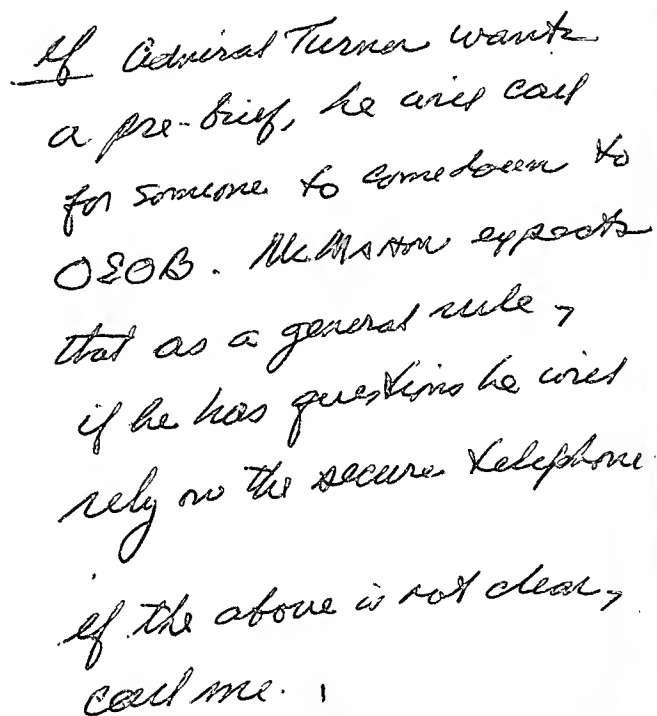 If Admiral Turner wants
a pre-brief, he will call
for someone to come down to
OEOB. McMahon expects
that as a general rule,
if he has questions he will
rely on the secure telephone.
if the above is not clear,
call me.